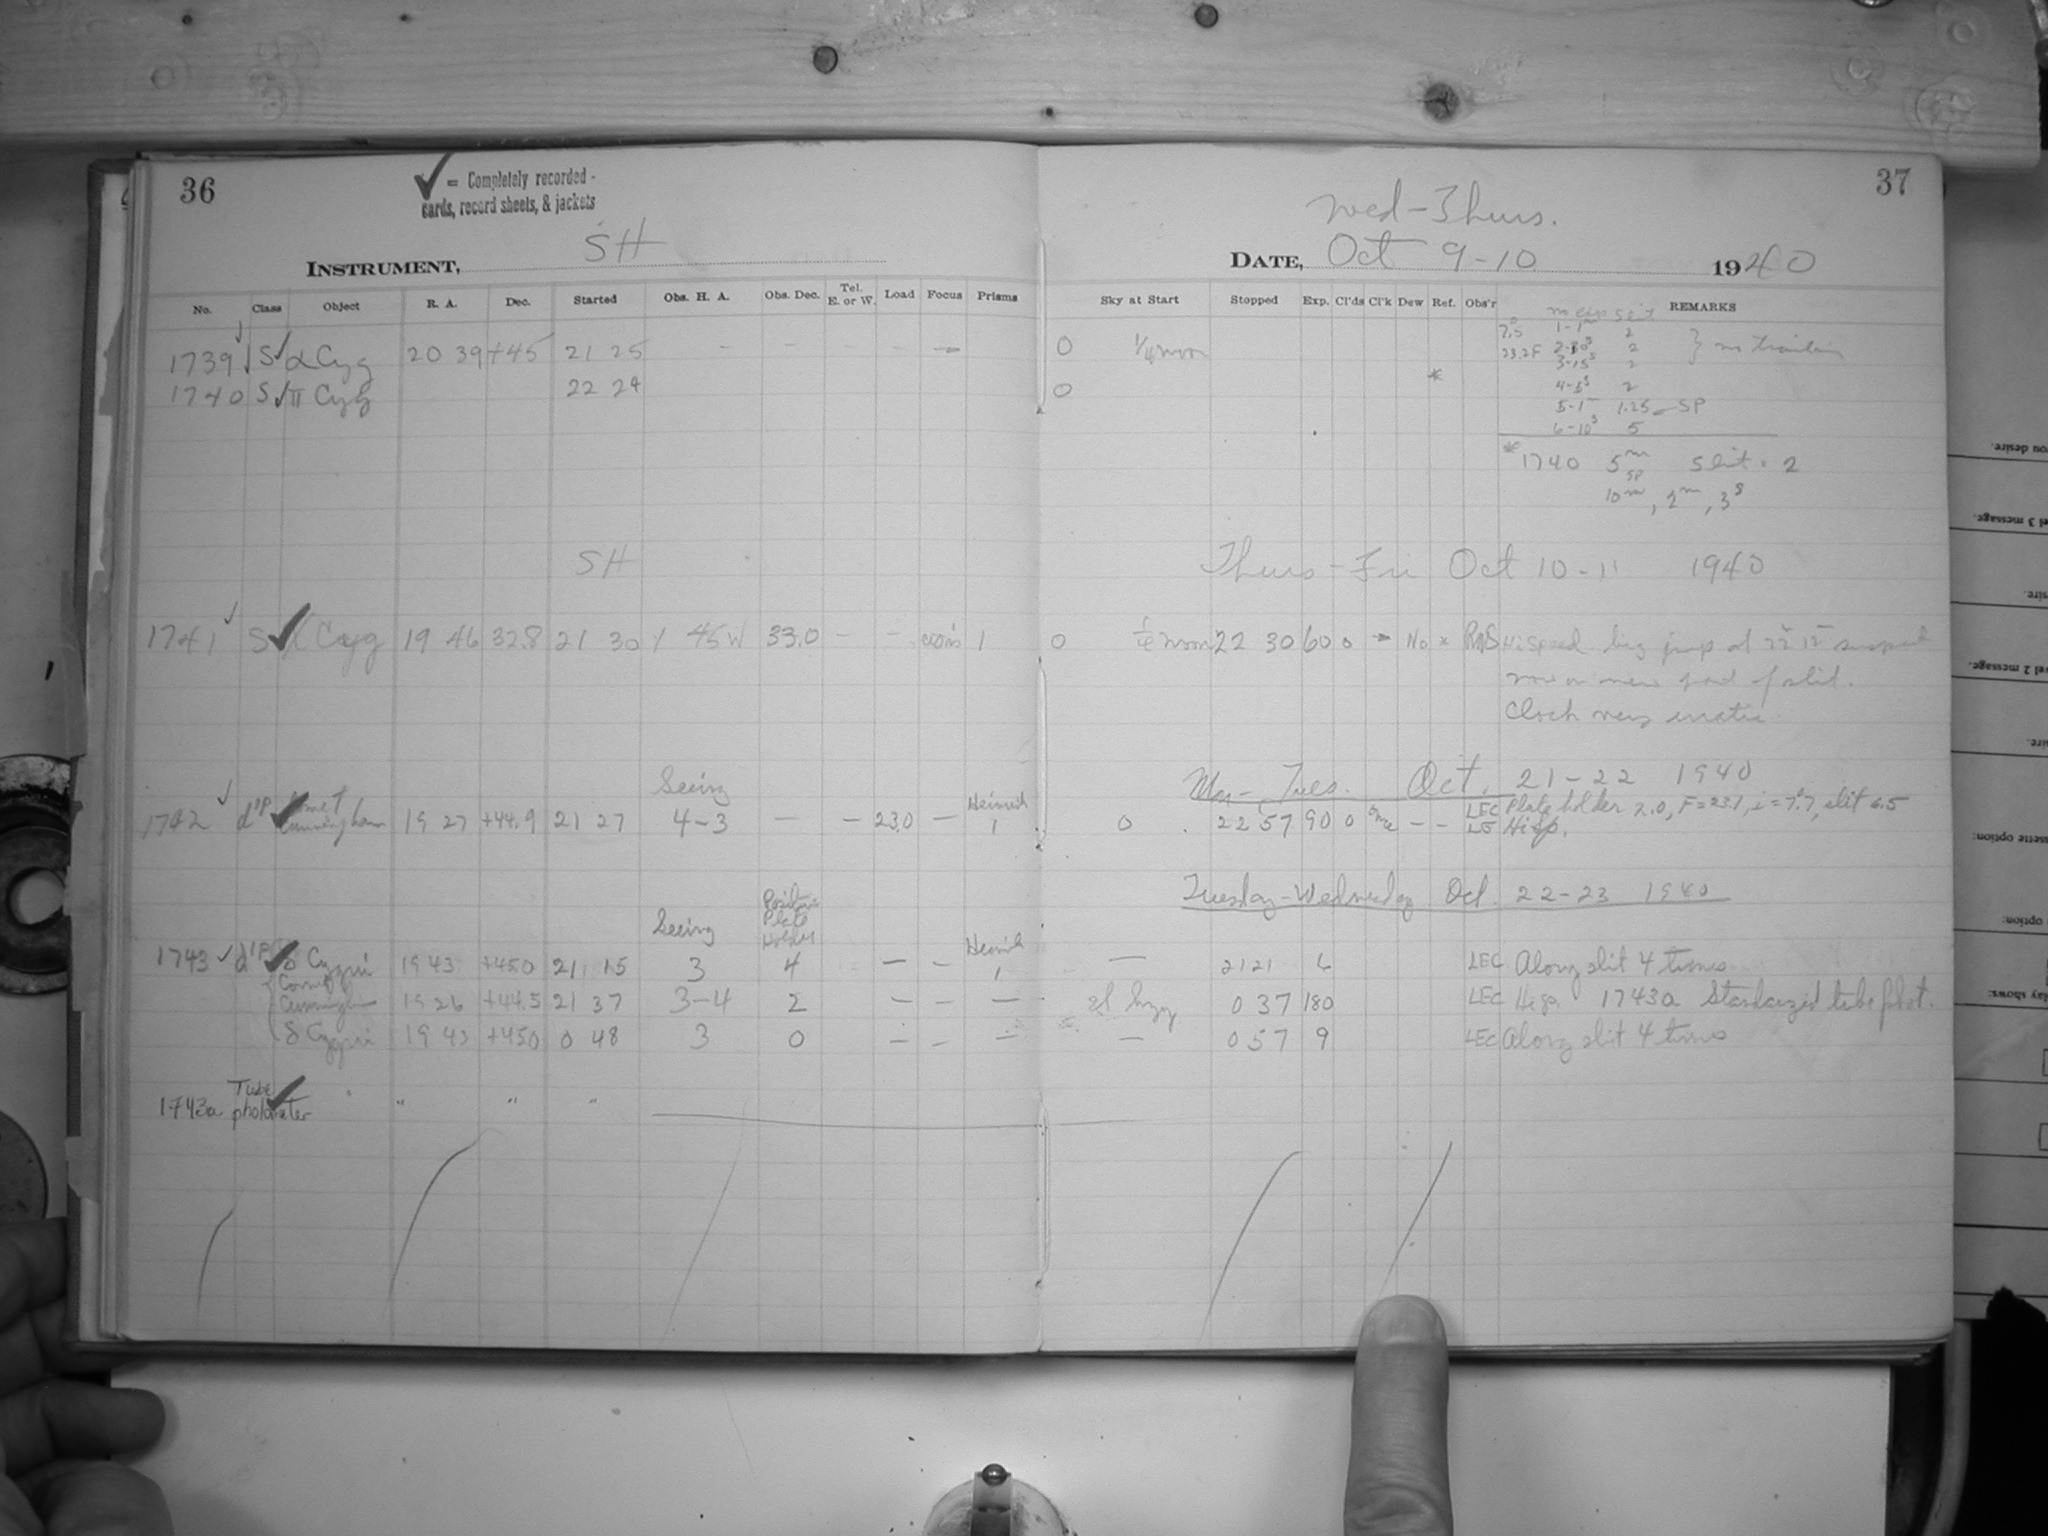 36
✓ = Completely recorded -
cards, record sheets, & jackets
INSTRUMENT, SH
No. Class Object R. A. Dec. Started Obs. H. A. Obs. Dec. Tel. E. or W. Load Focus Prisms
1739 S α Cyg 20 39 +45 21 25 - - - - - -
1740 S π Cyg 22 24
SH
1741 S χ Cyg 19 46 32.8 21 30 1 45 W 33.0 - - 1
Seeing
1742 Comet Cunningham 19 27 +44.9 21 27 4-3 - - 23.0 - 1
Seeing Position Plate Holder
1743 δ Cygni 19 43 +45.0 21 15 3 4 - - 1
Comet Cunningham 19 26 +44.5 21 37 3-4 2 - - -
δ Cygni 19 43 +45.0 0 48 3 0 - - -
1743a Tube photometer " " " "
37
Wed-Thurs.
DATE, Oct 9-10 1940
Sky at Start Stopped Exp. Cl'ds Cl'k Dew Ref. Obs'r REMARKS
no exp slit
0 1/4 moon 7.5 1-1m 2
23.2F 2-30s 2 } no trailing
3-15s 2
0 * 4-5s 2
5-1m 1.25 - SP
6-10s 5
* 1740 5m Slit = 2
SP
10m, 2m, 3s
Thurs-Fri Oct 10-11 1940
0 moon 22 30 60 0 - No * Hispeed big jump at
new part of slit.
Clock very erratic.
Mon-Tues. Oct. 21-22 1940
LEC Plate holder 2.0, F=23.1, i=7.7, slit 6.5
0 22 57 90 0 - - Hisp.
Tuesday-Wednesday Oct. 22-23 1940
- 21 21 6 LEC Along slit 4 times
sl hzy 0 37 180 LEC Hisp. 1743a Standarzid tube phot.
- 0 57 9 LEC Along slit 4 times